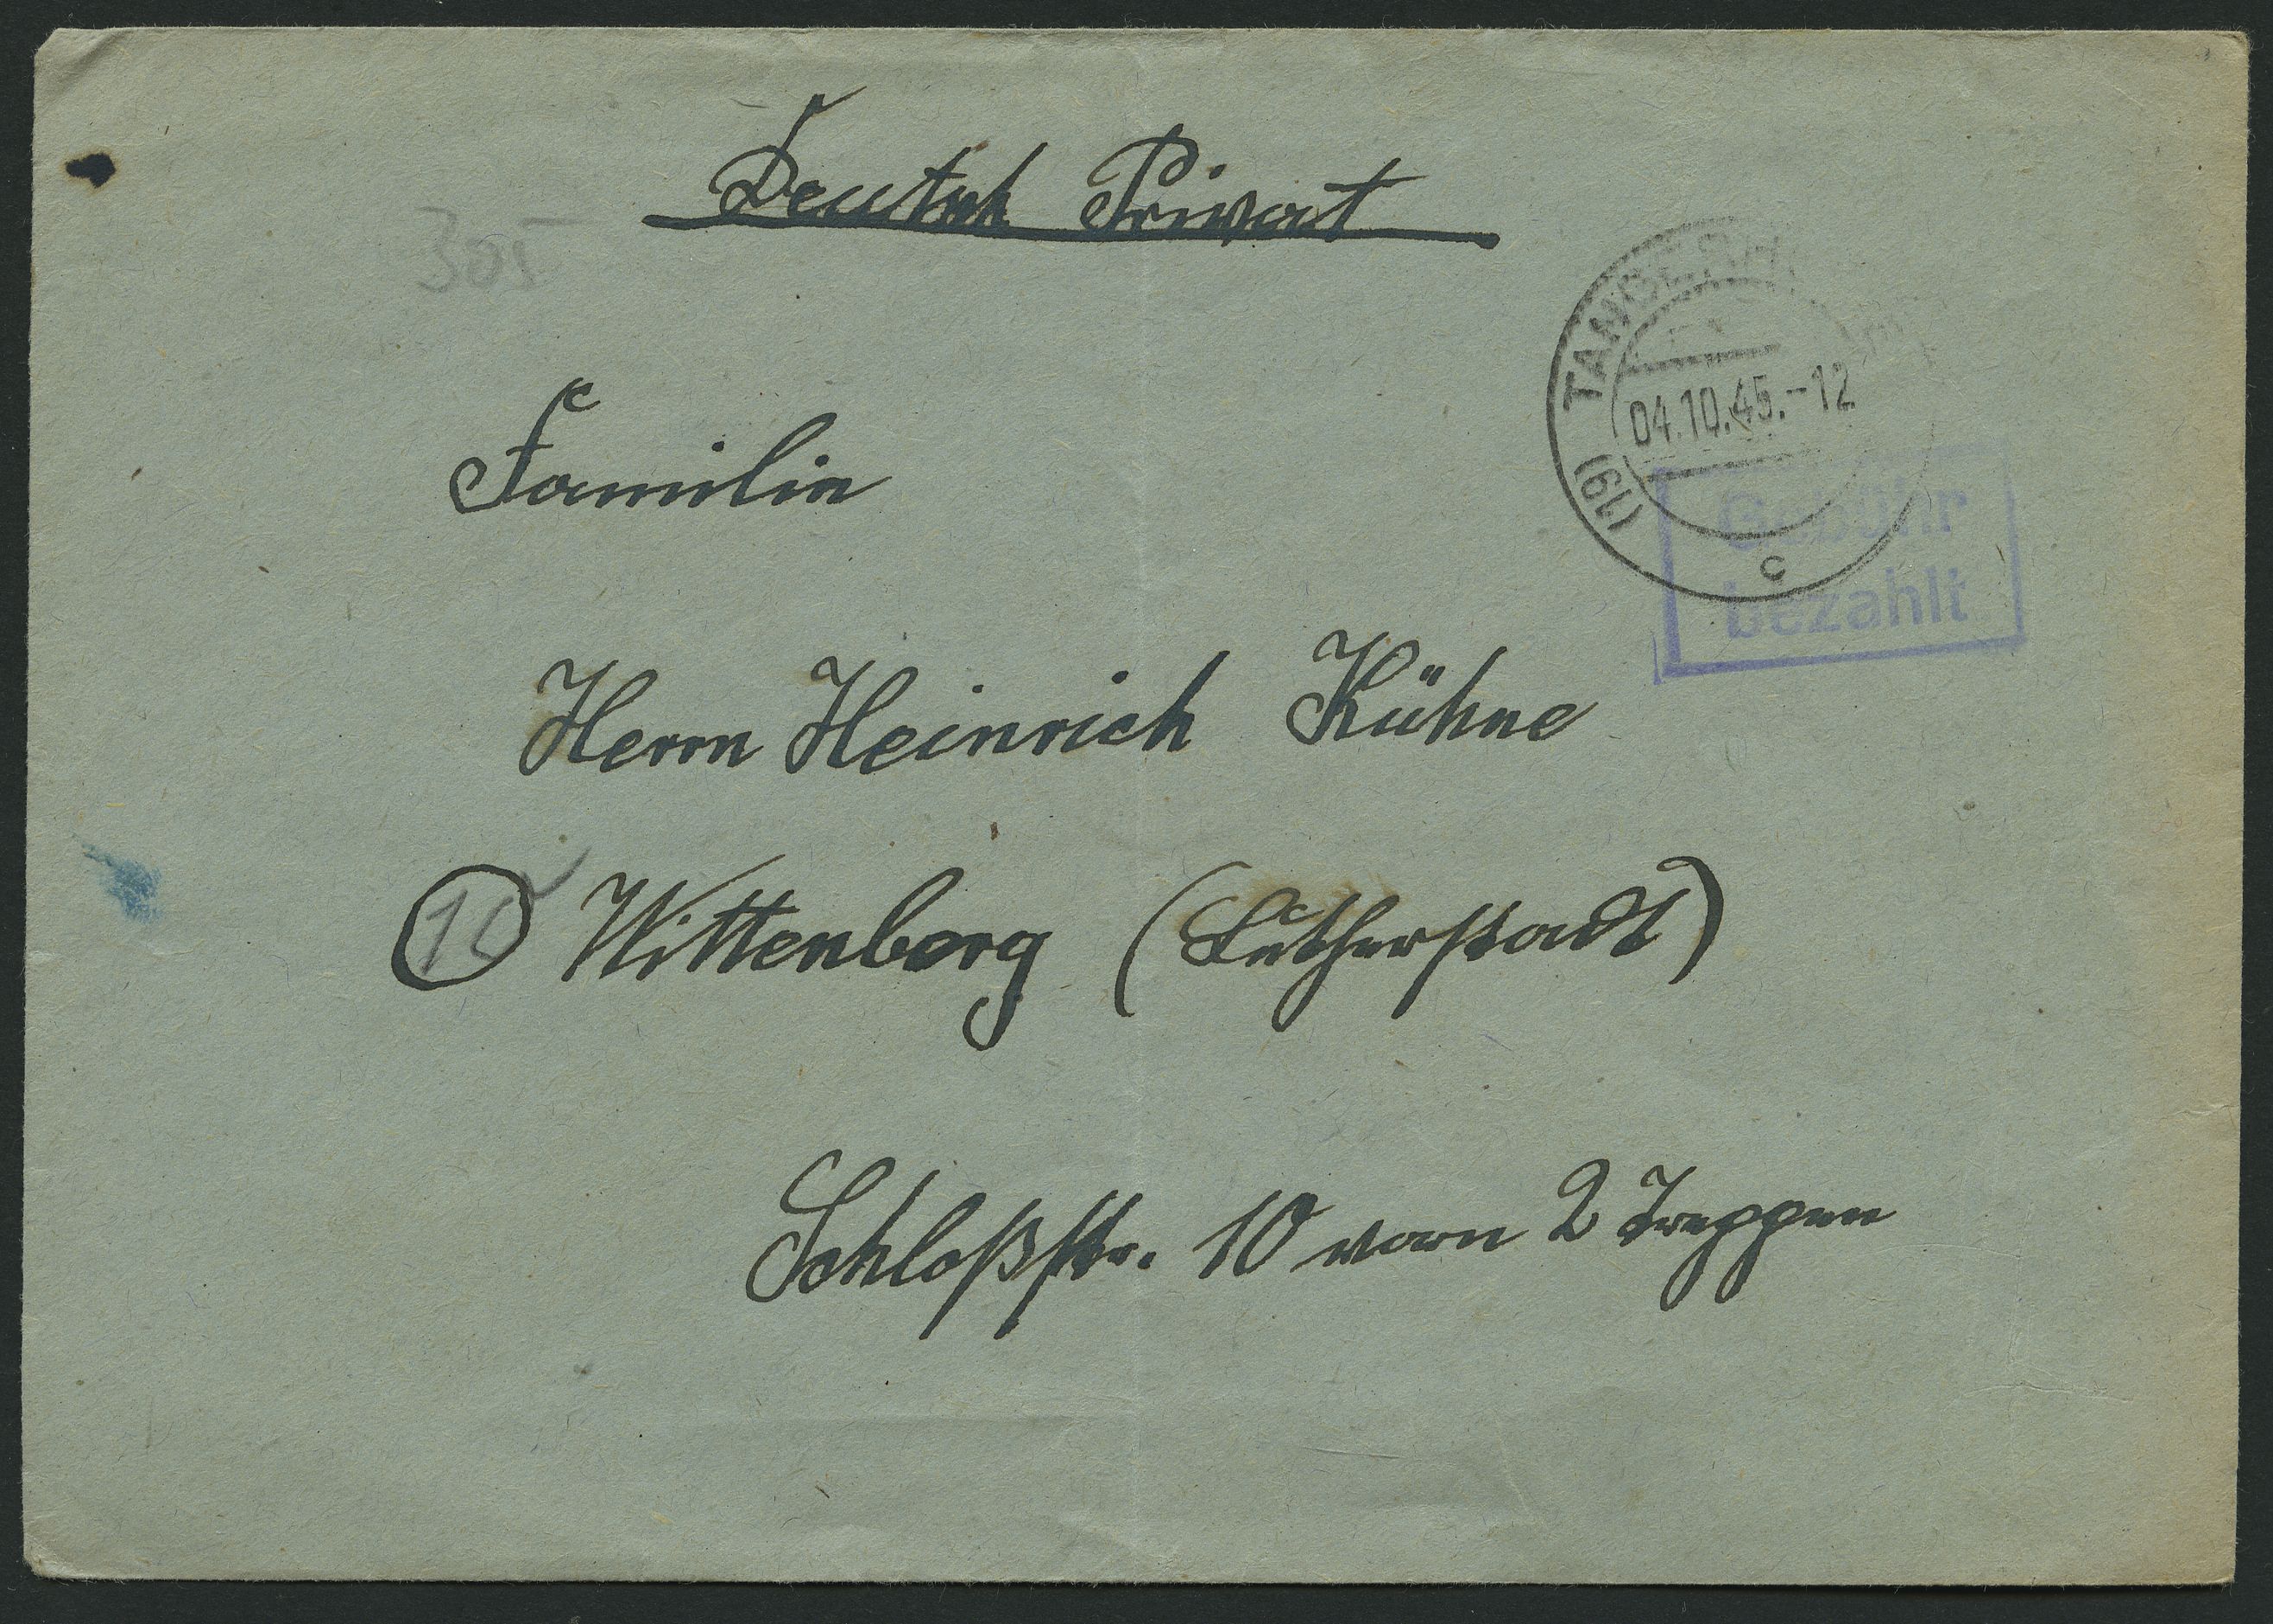 Deutsch Privat
305
TANGERH
04.10.45.-12
(19)
c
Gebühr
bezahlt
Familie
Herrn Heinrich Kühne
10 Wittenberg (Lutherstadt)
Schloßstr. 10 vorn 2 Treppen